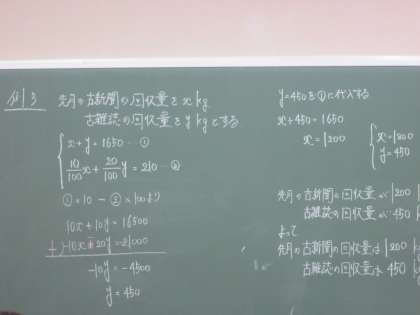 例3
先月の古新聞の回収量を x kg
古雑誌の回収量を y kg とする
x + y = 1650 … ①
10/100 x + 20/100 y = 210 … ②
①×10 − ②×100より
10x + 10y = 16500
10x + 20y = 21000
-10y = -4500
y = 450
y=450を①に代入する
x + 450 = 1650
x = 1200
x = 1200
y = 450
先月の古新聞の回収量が 1200
古雑誌の回収量が 450
よって
先月の古新聞の回収量は 1200
古雑誌の回収量は 450